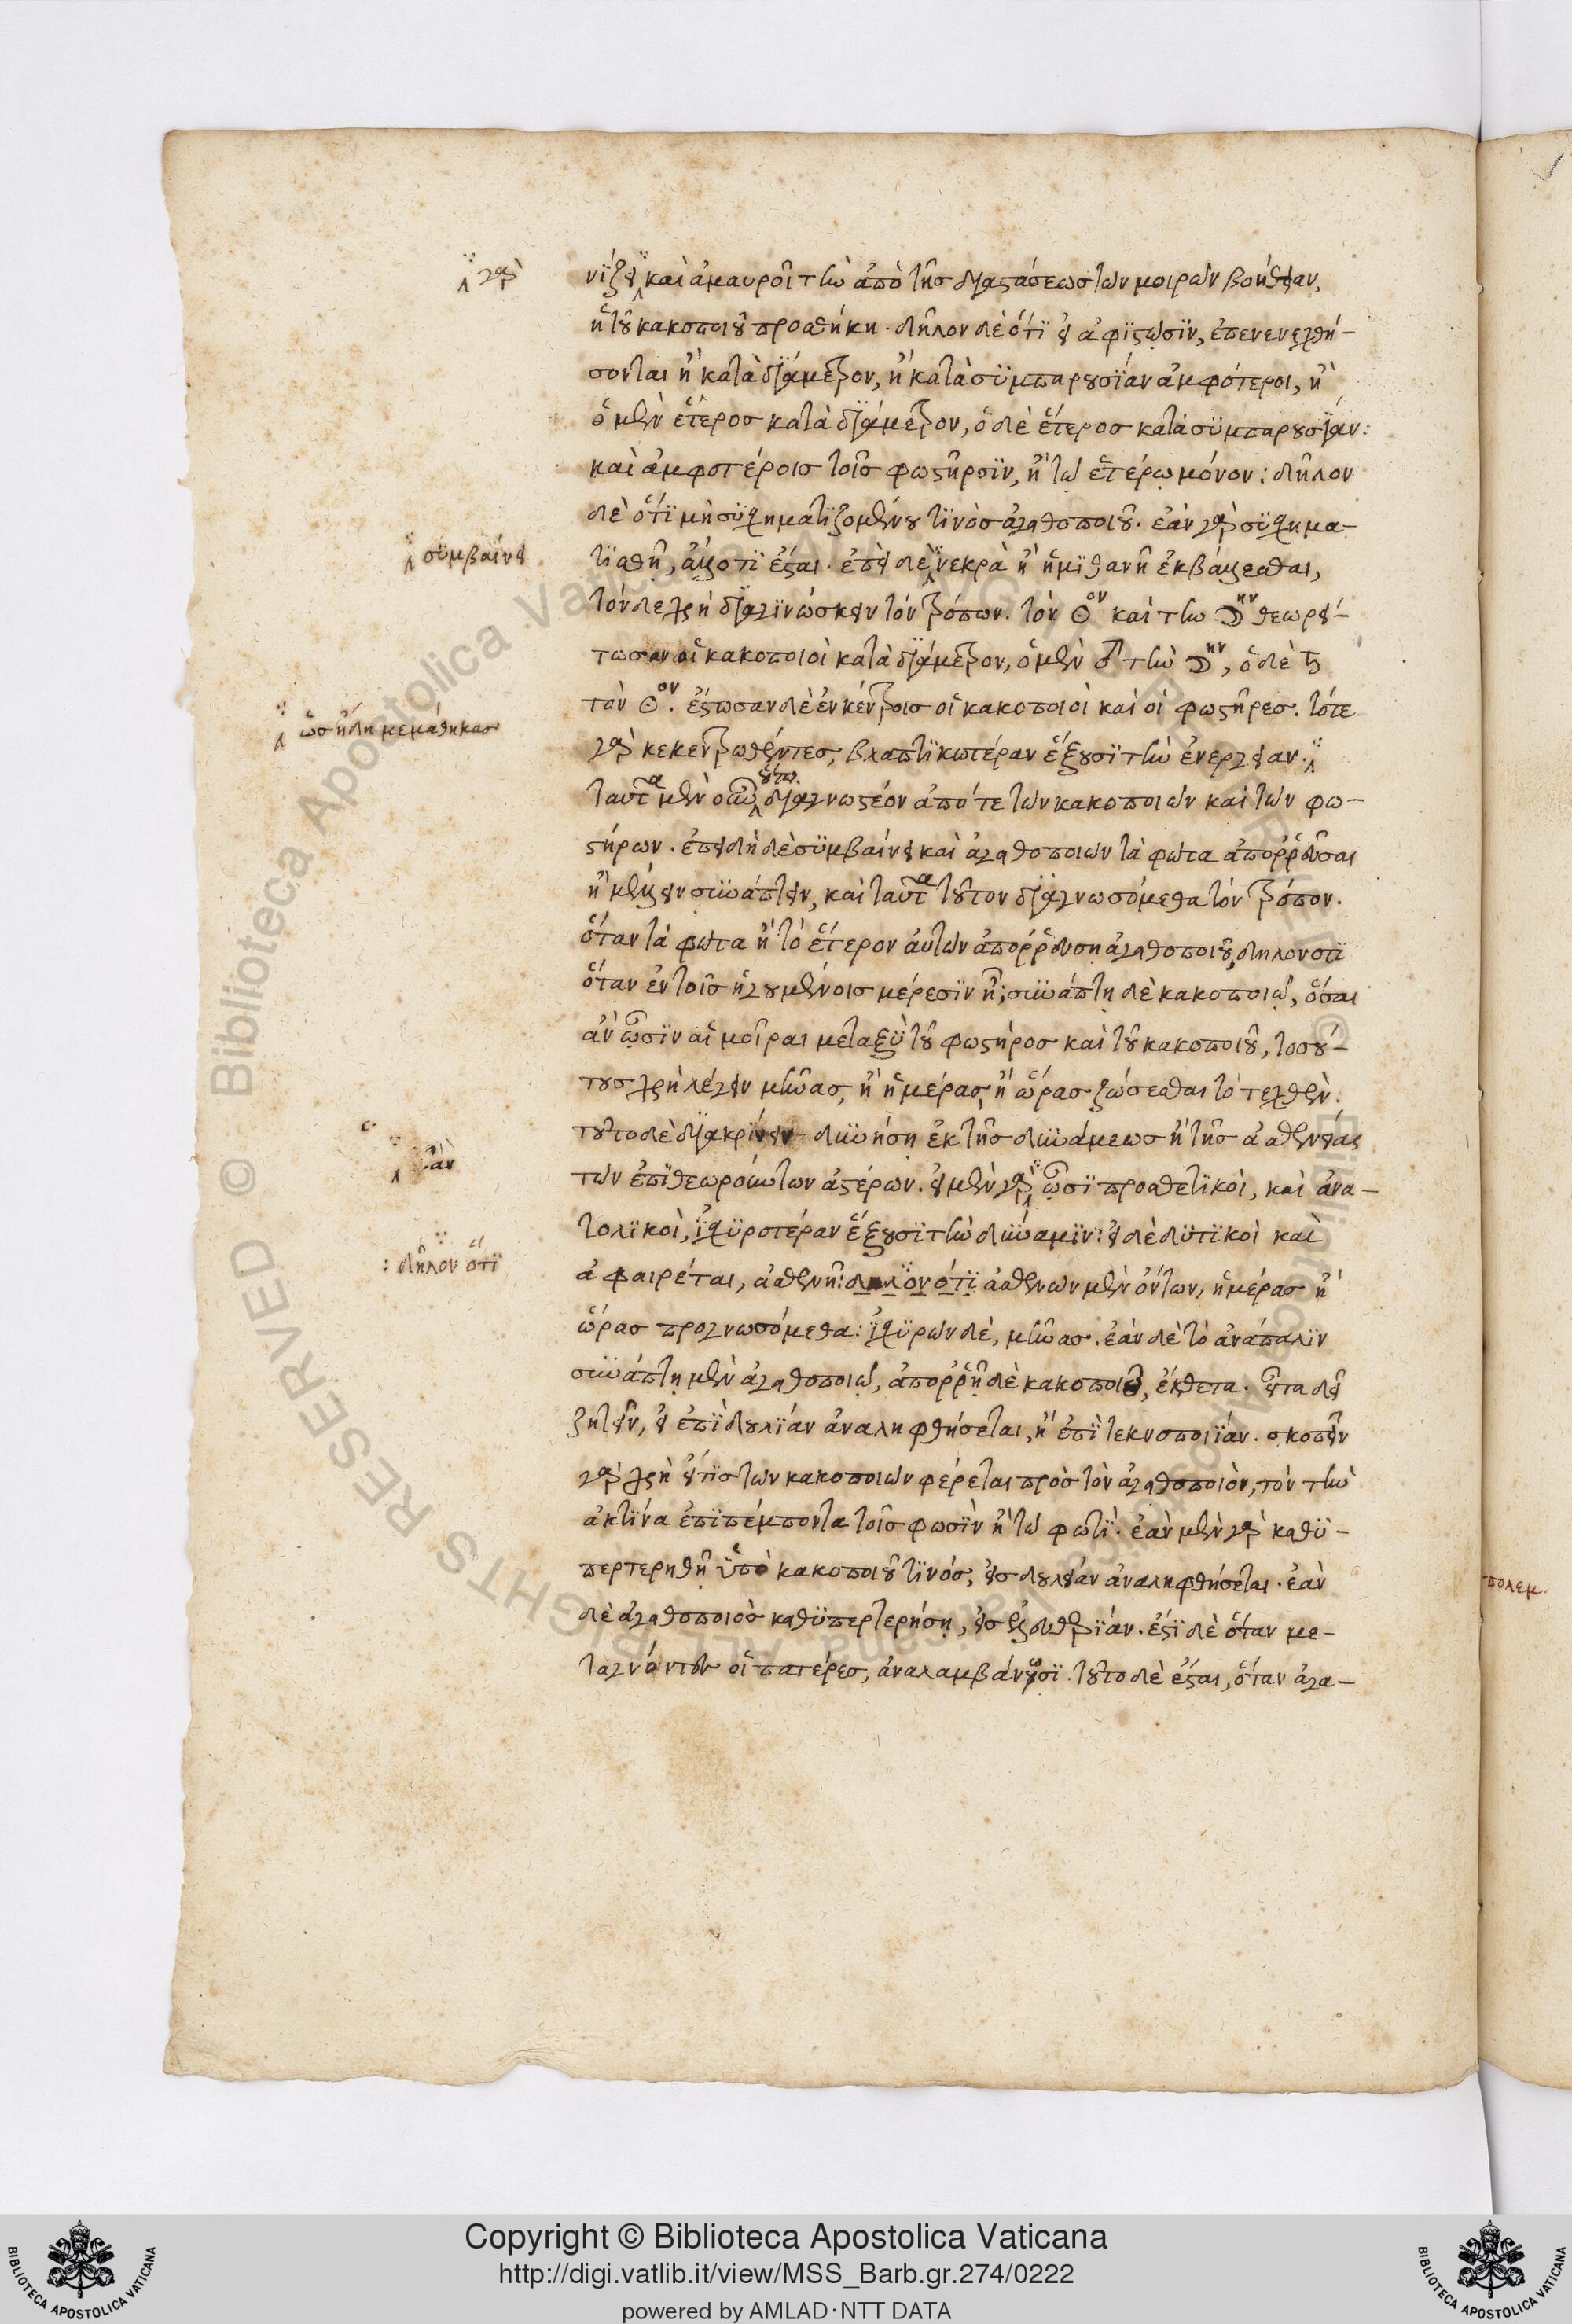 γὰρ
νίζει καὶ ἀμαυροῖ τὴν ἀπὸ τῆς διαστάσεως τῶν μοιρῶν βοήθειαν,
ἡ τοῦ κακοποιοῦ προσθήκη. δῆλον δὲ ὅτι εἰ ἀφιστῶσιν, ἐπενενεχθή-
σονται ἢ κατὰ διάμετρον, ἢ κατὰ συμπαρουσίαν ἀμφότεροι, ἢ
ὁ μὲν ἕτερος κατὰ διάμετρον, ὁ δὲ ἕτερος κατὰ συμπαρουσίαν:
καὶ ἀμφοτέροις τοῖς φωστῆρσιν, ἢ τῷ ἑτέρῳ μόνον: δῆλον
δὲ ὅτι μὴ συσχηματιζομένου τινὸς ἀγαθοποιοῦ. ἐὰν γὰρ συσχημα-
συμβαίνει
τισθῇ, ἄζοτι ἔσται. ἐπεὶ δὲ νεκρὰ ἢ ἡμιθανῆ ἐκβάζεσθαι,
τόνδε χρὴ διαγινώσκειν τὸν τρόπον. τὸν ☉ον καὶ τὴν ☽ην θεωρεί-
τωσαν οἱ κακοποιοὶ κατὰ διάμετρον, ὁ μὲν ♂ τὴν ☽ην, ὁ δὲ ♄
τὸν ☉ον. ἔστωσαν δὲ ἐν κέντροις οἱ κακοποιοὶ καὶ οἱ φωστῆρες. τότε
ὡς ἤδη μεμάθηκας
γὰρ κεκεντρωθέντες, βλαπτικωτέραν ἕξουσι τὴν ἐνέργειαν.
οὕτω.
ταῦτα μὲν οὖν διαγνωστέον ἀπό τε τῶν κακοποιῶν καὶ τῶν φω-
στήρων. ἐπειδὴ δὲ συμβαίνει καὶ ἀγαθοποιῶν τὰ φῶτα ἀπορρεῦσαι
ἢ μέλλειν συνάπτειν, καὶ ταῦτα τοῦτον διαγνωσόμεθα τὸν τρόπον.
ὅταν τὰ φῶτα ἢ τὸ ἕτερον αὐτῶν ἀπορρεύσῃ ἀγαθοποιοῦ, δηλονοτι
ὅταν ἐν τοῖς ἡγουμένοις μέρεσιν ᾖ; συνάπτῃ δὲ κακοποιῷ, ὅσαι
ἂν ὦσιν αἱ μοῖραι μεταξὺ τοῦ φωστῆρος καὶ τοῦ κακοποιοῦ, τοσού-
τους χρὴ λέγειν μῆνας, ἢ ἡμέρας, ἢ ὥρας ζώσεσθαι τὸ τεχθέν.
τοῦτο δὲ διακρίνειν δυνήσῃ ἐκ τῆς δυνάμεως ἢ τῆς ἀσθενείας
ἐὰν
τῶν ἐπιθεωρούντων ἀστέρων. εἰ μὲν γὰρ ὦσι προσθετικοὶ, καὶ ἀνα-
τολικοὶ, ἰσχυροτέραν ἕξουσι τὴν δύναμιν: εἰ δὲ δυτικοὶ καὶ
: δῆλον ὅτι
ἀφαιρέται, ἀσθενῆ: δηλον ότι ἀσθενῶν μὲν ὄντων, ἡμέρας ἢ
ὥρας προγνωσόμεθα: ἰσχυρῶν δὲ, μῆνας. ἐὰν δὲ τὸ ἀνάπαλιν
συνάπτῃ μὲν ἀγαθοποιῷ, ἀπορρῇ δὲ κακοποιοῦ, ἔκθετα. εἶτα δεῖ
ζητεῖν, εἰ ἐπὶ δουλίαν ἀναληφθήσεται, ἢ ἐπὶ τεκνοποιίαν. σκοπεῖν
γὰρ χρὴ εἴ τις τῶν κακοποιῶν φέρεται πρὸς τὸν ἀγαθοποιὸν, τὸν τὴν
ἀκτίνα ἐπιπέμποντα τοῖς φωσὶν ἢ τῷ φωτί. ἐὰν μὲν γὰρ καθυ-
περτερηθῇ ὑπὸ κακοποιοῦ τινός, εἰς δουλείαν ἀναληφθήσεται. ἐὰν
δὲ ἀγαθοποιὸς καθυπερτερήσῃ, εἰς ἐλευθερίαν. ἔστι δὲ ὅταν με-
ταγνόντες οἱ πατέρες, ἀναλαμβάνωσι. τοῦτο δὲ ἔσται, ὅταν ἀγα-
πολεμ.
© Biblioteca Apostolica Vaticana ALL RIGHTS RESERVED
BIBLIOTECA APOSTOLICA VATICANA
Copyright © Biblioteca Apostolica Vaticana
http://digi.vatlib.it/view/MSS_Barb.gr.274/0222
powered by AMLAD·NTT DATA
BIBLIOTECA APOSTOLICA VATICANA